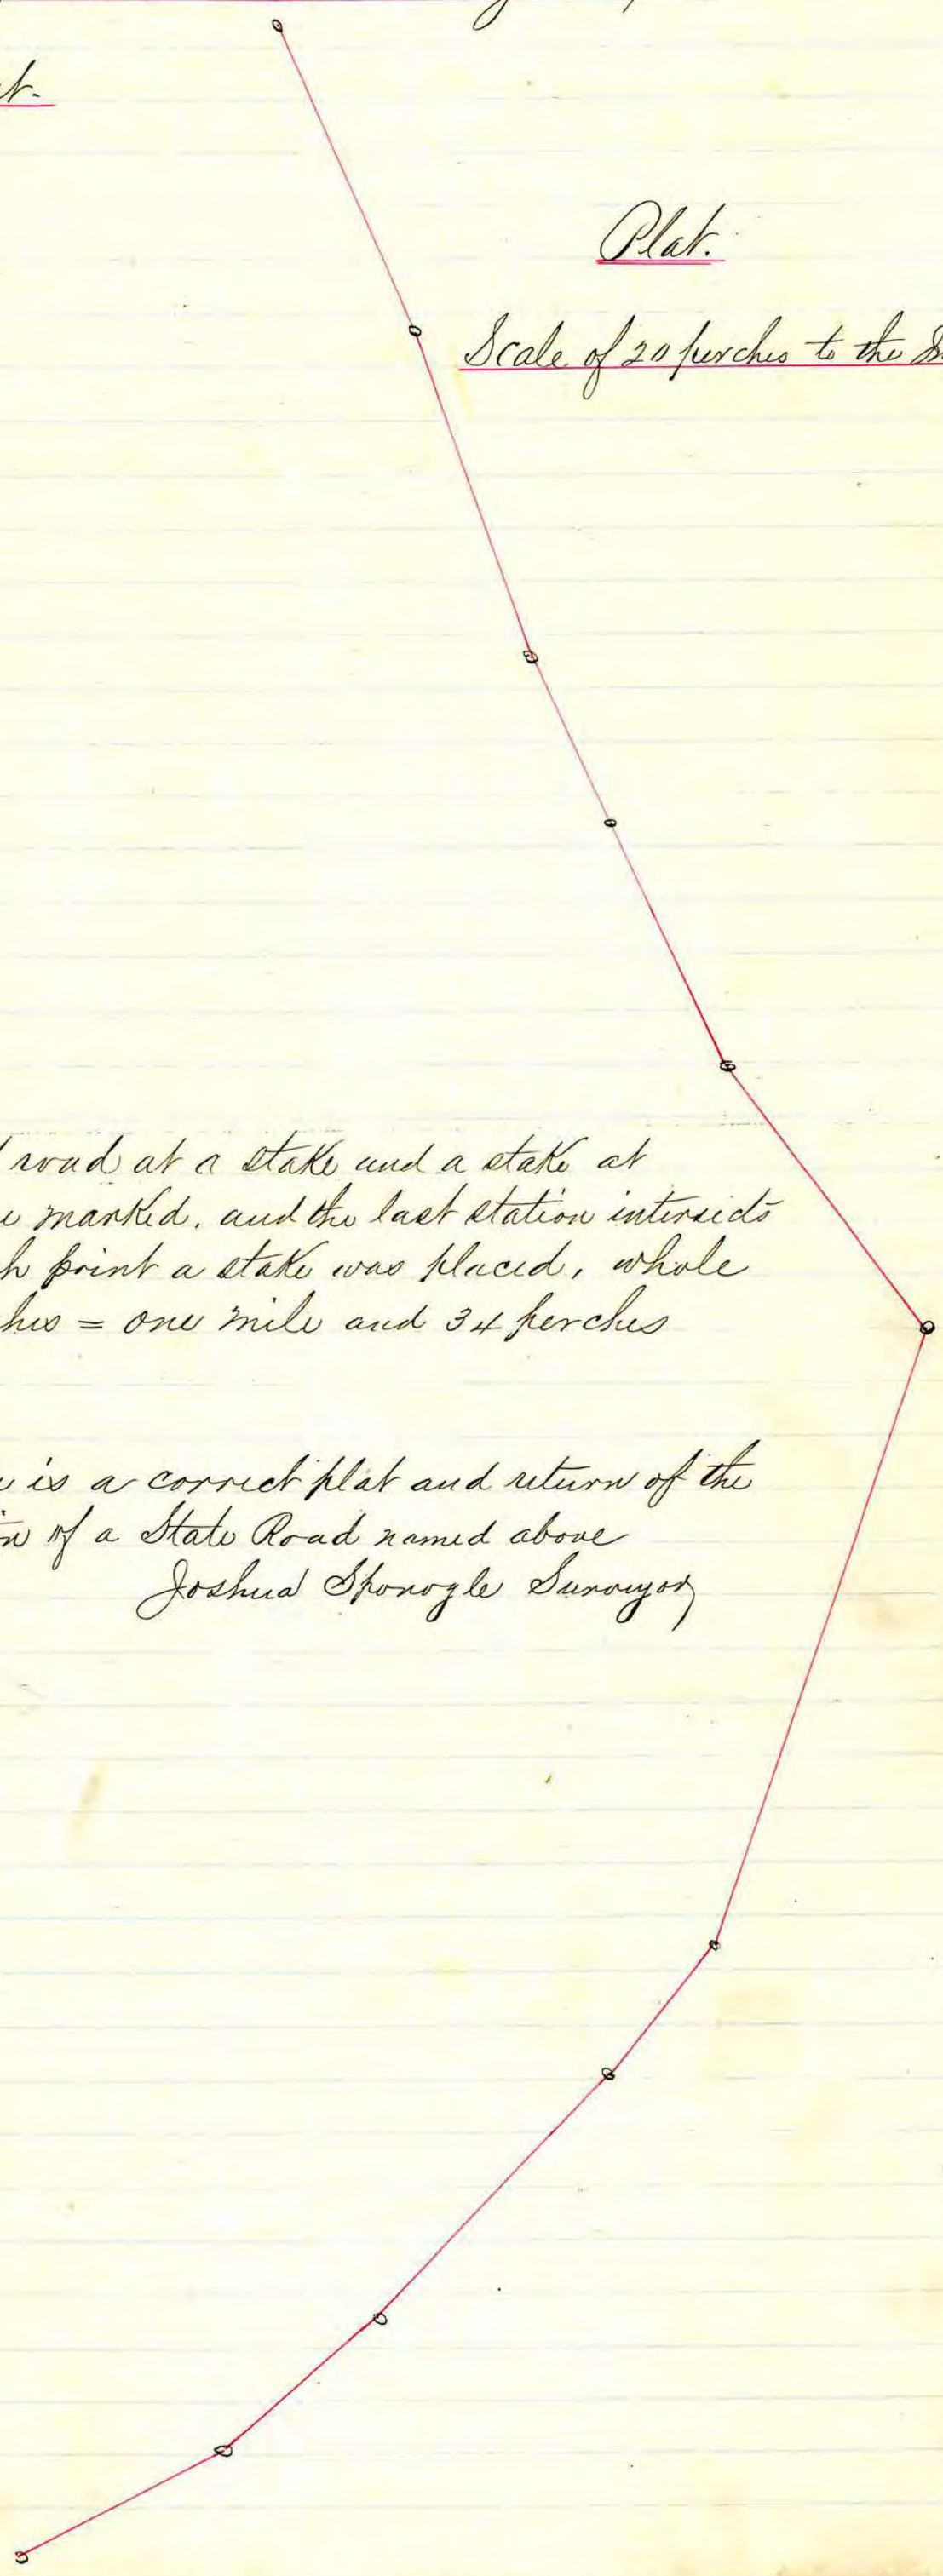 t.
Plat.
Scale of 20 perches to the
road at a stake and a stake at
marked, and the last station intersects
h point a stake was placed, whole
hes = one mile and 34 perches
is a correct plat and return of the
n of a State Road named above
Joshua Sponogle Surveyor